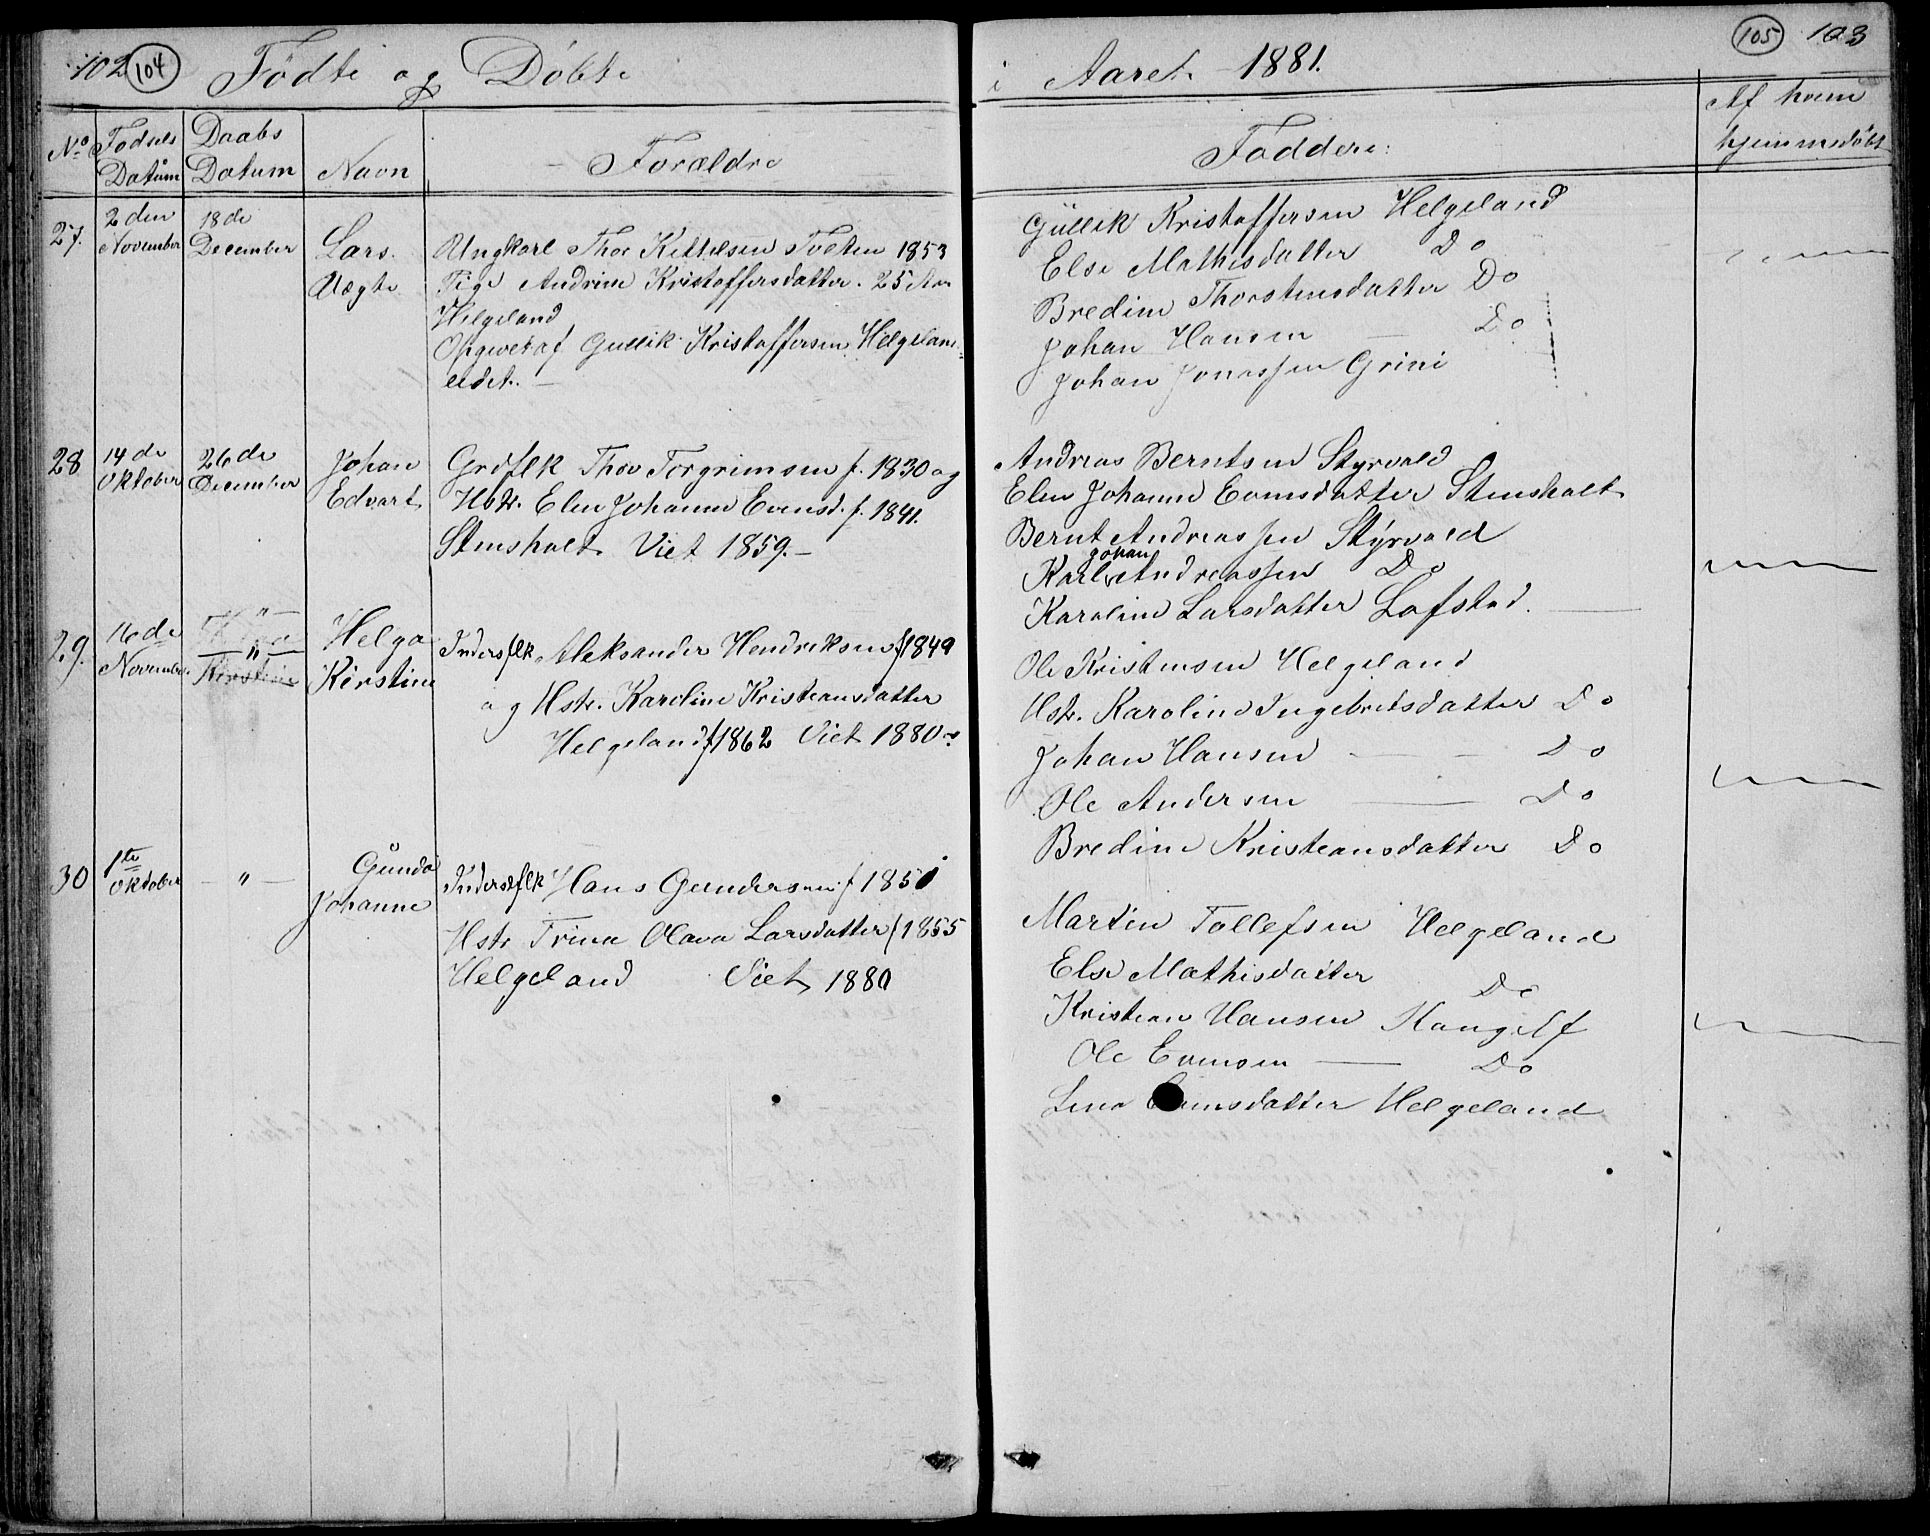 102 104 Födte og Döbte
No Fødsels Datum Daabs Datum Navn Forældre
27. 2den November 18de December Lars. Uægte
Ungkarl Thor Kittelsen Tveten 1853
Pige Andrine Kristoffersdatter. 25 Aar
Helgeland
Opgivet af Gullik Kristoffersen Helgeland-
eidet. —
28 14de Oktober 26de December Johan Edvart
Grdflk Thov Torgrimsen f. 1830 og
Hstr. Elen Johanne Evensd. f. 1841.
Stensholt Viet 1859. —
29. 16de November — " — Helga Kirstine
Inderstflk Aleksander Hendriksen f 1849
og Hstr. Karoline Kristeansdatter
Helgeland f 1862 Viet 1880
30 1te Oktober — " — Gunda Johanne
Inderstflk Hans Gundersen f 1851
Hstr Trine Olava Larsdatter f 1855
Helgeland Viet 1880
i Aaret 1881. 105 103
Faddere: Af hvem hjemmedöbt
Güllik Kristoffersen Helgeland
Else Mathisdatter Do
Bredine Thorstensdatter Do
Johan Hansen — Do
Johan Jonassen Grini
Andreas Berntsen Styrvold
Elen Johanne Evensdatter Stensholt
Bernt Andreassen Styrvold
Karl Johan Andreassen Do
Karoline Larsdatter Lofstad.
Ole Kristensen Helgeland
Hstr. Karoline Ingebretsdatter Do
Johan Hansen — Do
Ole Andersen — Do
Bredine Kristeansdatter Do
Martin Tollefsen Helgeland
Else Mathisdatter Do
Kristean Hansen
Ole Evensen — Do
Lina Evensdatter Helgeland